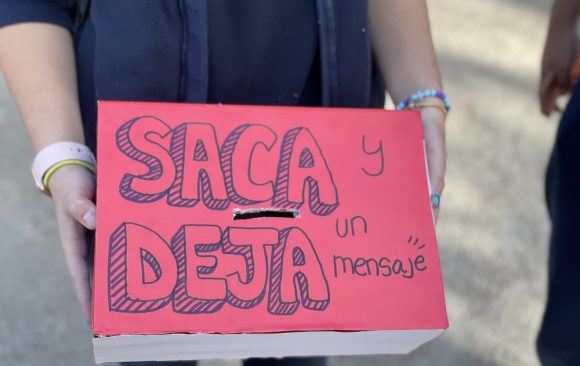 SACA y
DEJA un
mensaje